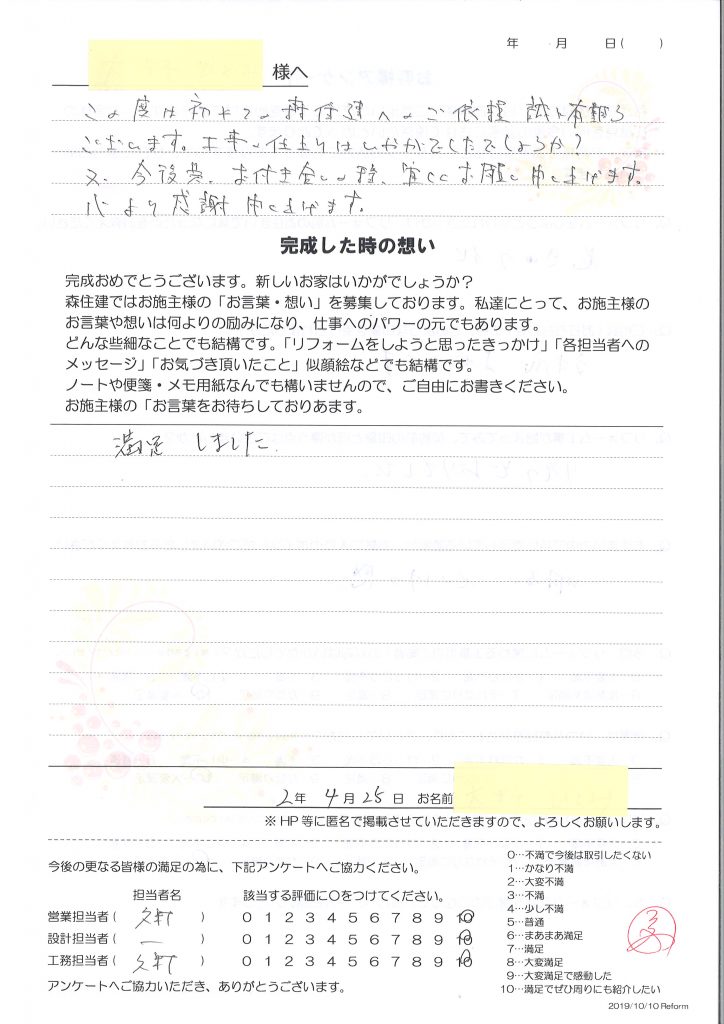 年 月 日( )
様へ
この度は初めての森住建へのご依頼 誠に有難う
ございます。工事の仕上りはいかがでしたでしょうか?
又、今後共、お付き合いの程、宜しくお願い申し上げます。
心より感謝申し上げます。
完成した時の想い
完成おめでとうございます。新しいお家はいかがでしょうか?
森住建ではお施主様の「お言葉・想い」を募集しております。私達にとって、お施主様の
お言葉や想いは何よりの励みになり、仕事へのパワーの元でもあります。
どんな些細なことでも結構です。「リフォームをしようと思ったきっかけ」「各担当者への
メッセージ」「お気づき頂いたこと」似顔絵などでも結構です。
ノートや便箋・メモ用紙なんでも構いませんので、ご自由にお書きください。
お施主様の「お言葉をお待ちしておりあます。
満足 しました.
2年 4月25日 お名前
※HP等に匿名で掲載させていただきますので、よろしくお願いします。
今後の更なる皆様の満足の為に、下記アンケートへご協力ください。
担当者名 該当する評価に〇をつけてください。
営業担当者( ) 0 1 2 3 4 5 6 7 8 9 10
設計担当者( ー ) 0 1 2 3 4 5 6 7 8 9 10
工務担当者( ) 0 1 2 3 4 5 6 7 8 9 10
アンケートへご協力いただき、ありがとうございます。
0…不満で今後は取引したくない
1…かなり不満
2…大変不満
3…不満
4…少し不満
5…普通
6…まあまあ満足
7…満足
8…大変満足
9…大変満足で感動した
10…満足でぜひ周りにも紹介したい
2019/10/10 Reform